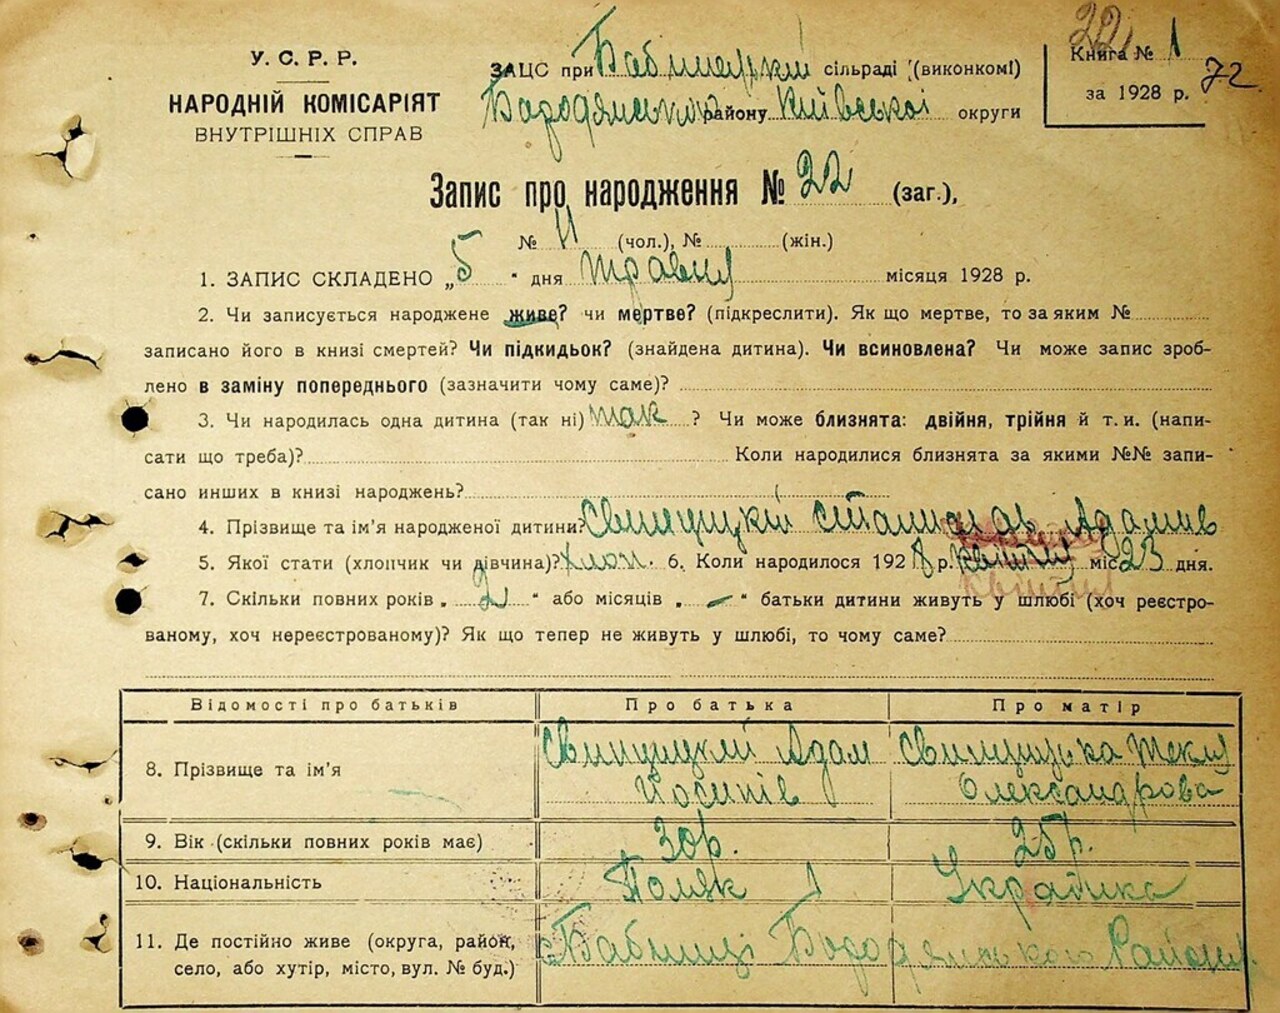 22
У. С. Р. Р.
НАРОДНІЙ КОМІСАРІЯТ
ВНУТРІШНІХ СПРАВ
ЗАЦС при Бабинецкій сільраді (виконкомі)
Бородянського району Київської округи
Книга № 1
за 1928 р.
72
Запис про народження № 22 (заг.),
№ 11 (чол.), № (жін.)
1. ЗАПИС СКЛАДЕНО „5 “ дня травня місяця 1928 р.
2. Чи записується народжене живе? чи мертве? (підкреслити). Як що мертве, то за яким №
записано його в книзі смертей? Чи підкидьок? (знайдена дитина). Чи всиновлена? Чи може запис зроб-
лено в заміну попереднього (зазначити чому саме)?
3. Чи народилась одна дитина (так ні) так ? Чи може близнята: двійня, трійня й т. и. (напи-
сати що треба)? Коли народилися близнята за якими №№ запи-
сано инших в книзі народжень?
4. Прізвище та ім’я народженої дитини? Свинціцкій Адамив
5. Якої стати (хлопчик чи дівчина)? хлоп. 6. Коли народилося 1928 р. квітня міс 23 дня.
квітня
7. Скільки повних років „ 2 “ або місяців „ – “ батьки дитини живуть у шлюбі (хоч реєстро-
ваному, хоч нереєстрованому)? Як що тепер не живуть у шлюбі, то чому саме?
Відомості про батьків Про батька Про матір
8. Прізвище та ім’я Адам Текля
Йосипів Олександрова
9. Вік (скільки повних років має) 30р. 25р.
10. Національність Поляк Українка
11. Де постійно живе (округа, район,
село, або хутір, місто, вул. № буд.)
с Бабинці Бородянського Району